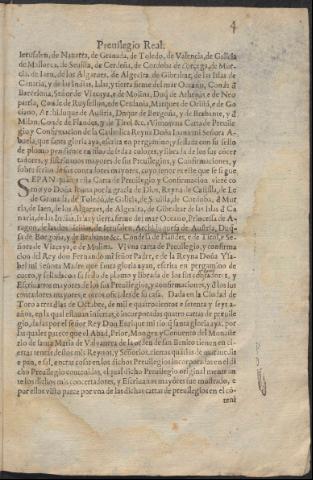 4
Preuilegio Real.
Ierusalen, de Nauarra, de Granada, de Toledo, de Valencia, de Galicia
de Mallorca, de Seuilla, de Cerdeña, de Cordoua de Corcega, de Mur
cia, de Iaen, de los Algarues, de Algezira, de Gibraltar, de las Islas de
Canaria, y de las Indias, Islas, y tierra firme del mar Oceano, Conde d
Barcelona, Señor de Vizcaya, e de Molina, Duq de Athenas, e de Neo
patria, Conde de Ruysellon, e de Cerdania, Marques de Oristã, e de Go
ciano, Archiduque de Austria, Duque de Borgoña, y de Brabante, y d
Milan, Conde de Flandes, y de Tirol, &c. Vi una mi Carta de Preuile
gio y Confirmacion de la Catholica Reyna Doña Ioana mi Señora A-
buela, que santa gloria aya, escrita en pergamino, y sellada con su sello
de plomo pendiente en hilos de seda a colores, y librada de los sus concer
tadores, y escriuanos mayores de sus Preuilegios, y Confirmaciones, y
sobre escrito de sus contadores mayores, cuyo tenor es este que se sigue
SEPAN quantos esta Carta de Preuilegio y Confirmacion vieren co
mo yo Doña Iuana por la gracia de Dios, Reyna de Castilla, de Le
de Granada, de Toledo, de Galicia, de Seuilla, de Cordoua, d Mur
cia, de Iaen, de los Algarues, de Algezira, de Gibraltar de las Islas d Ca
naria, de las Indias, Islas, y tierra firme del mar Oceano, Princesa de A-
ragon, de las dos Sicilias, de Ierusalen, Archiduquesa de Austria, Duq
sa de Borgoña, y de Brabante &c. Condesa de Flandes, e de Tirol, e Se
ñora de Vizcaya, e de Molina. Vi una carta de Preuilegio, y confirma
cion del Rey don Fernando mi señor Padre, e de la Reyna Doña Ysa
bel mi Señora Madre que santa gloria ayan, escrita en pergamino de
cuero, y sellada con su sello de plomo y librada de los sus concertadores, y
Escriuanos mayores de los sus Preuilegios, y confirmaciones, y d los sus
contadores mayores, e otros oficiales de su casa. Dada en la Ciudad de
Toro a tres dias de Octubre, de mil e quatrocientos e setenta y seys a
ños, en la qual estauan insertas, e incorporadas quatro cartas de preuile
gio, dadas por el señor Rey Don Enrique mi tio q santa gloria aya, por
las quales parece que el Abad, Prior, Monges y Conuento del Monaste
rio de santa Maria de Valuanera de la orden de san Benito tienen en cier
tas rentas de los mis Reynos, y Señorios, ciertas quantias de marauedis,
e pan, e sal, e otras cosas en los dichos Preuilegios incorporados en el di
cho Preuilegio contenidas, el qual dicho Preuilegio original mente an
te los dichos mis concertadores, y Escriuanos mayores fue mostrado, e
por ellos visto parece por vna de las dichas cartas de preuilegios en el cõ-
teni